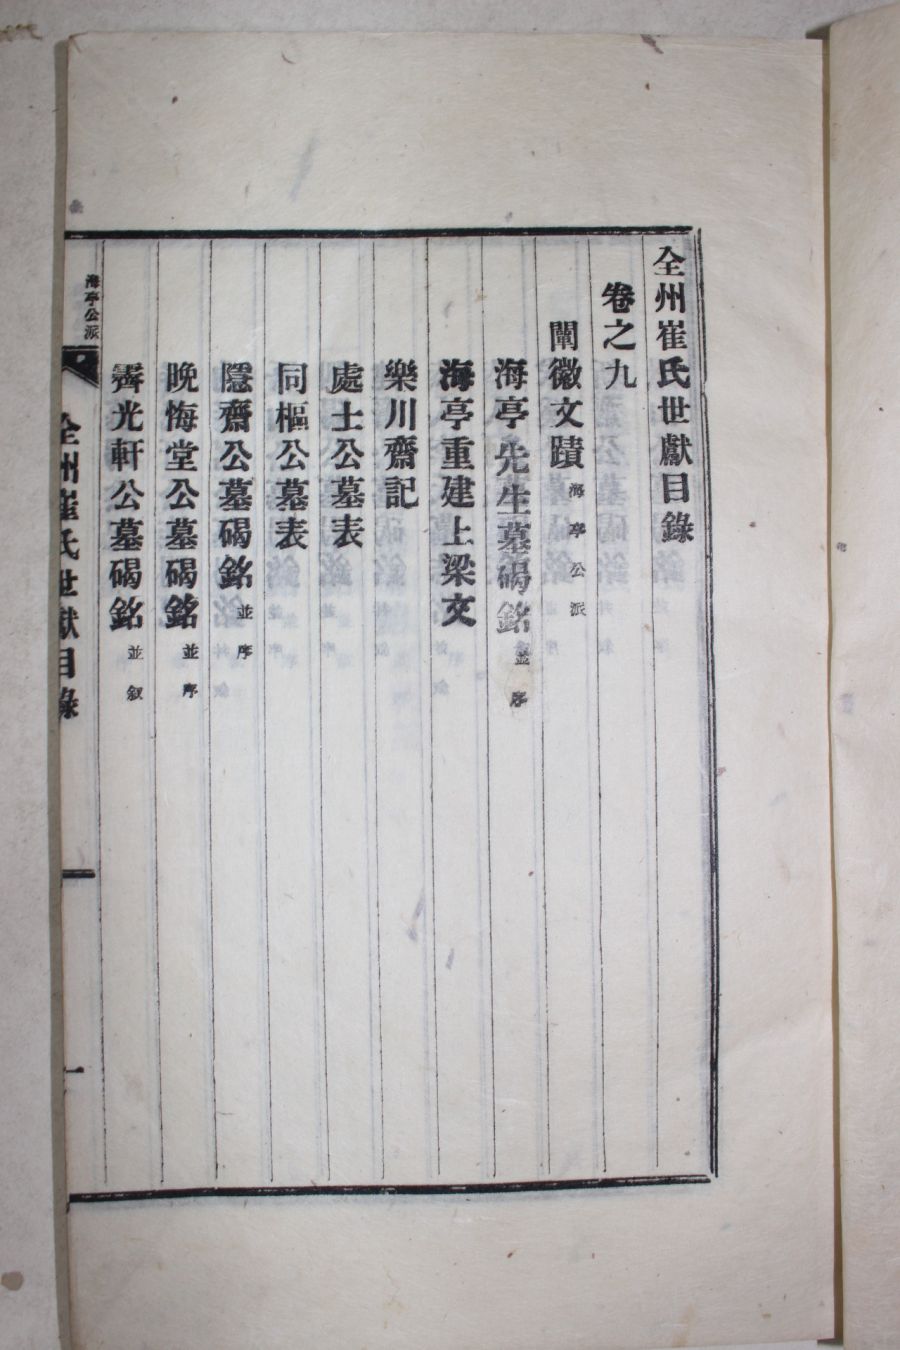 全州崔氏世獻目錄
卷之九
闡徽文蹟 海亭公派
海亭先生墓碣銘 並序
海亭重建上梁文
樂川齋記
處士公墓表
同樞公墓表
隱齋公墓碣銘 並序
晩悔堂公墓碣銘 並序
霽光軒公墓碣銘 並叙
海亭公派
全州崔氏世獻目錄
一